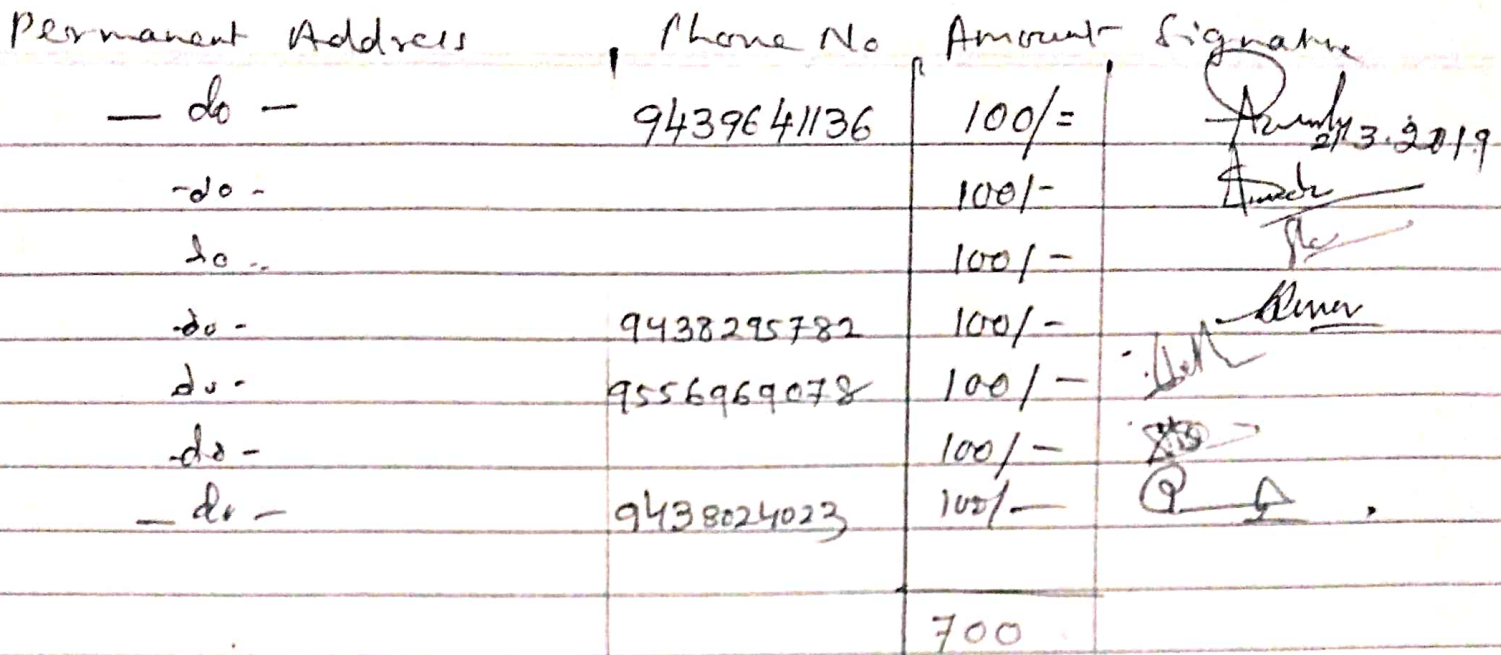 Permanent Address Phone No Amount Signature
— do — 9439641136 100/= 2/3.2019
-do - 100/-
do .. 100/-
-do - 9438295782 100/-
do - 9556969078 100/-
-do - 100/-
— do — 9438024023 100/-
700